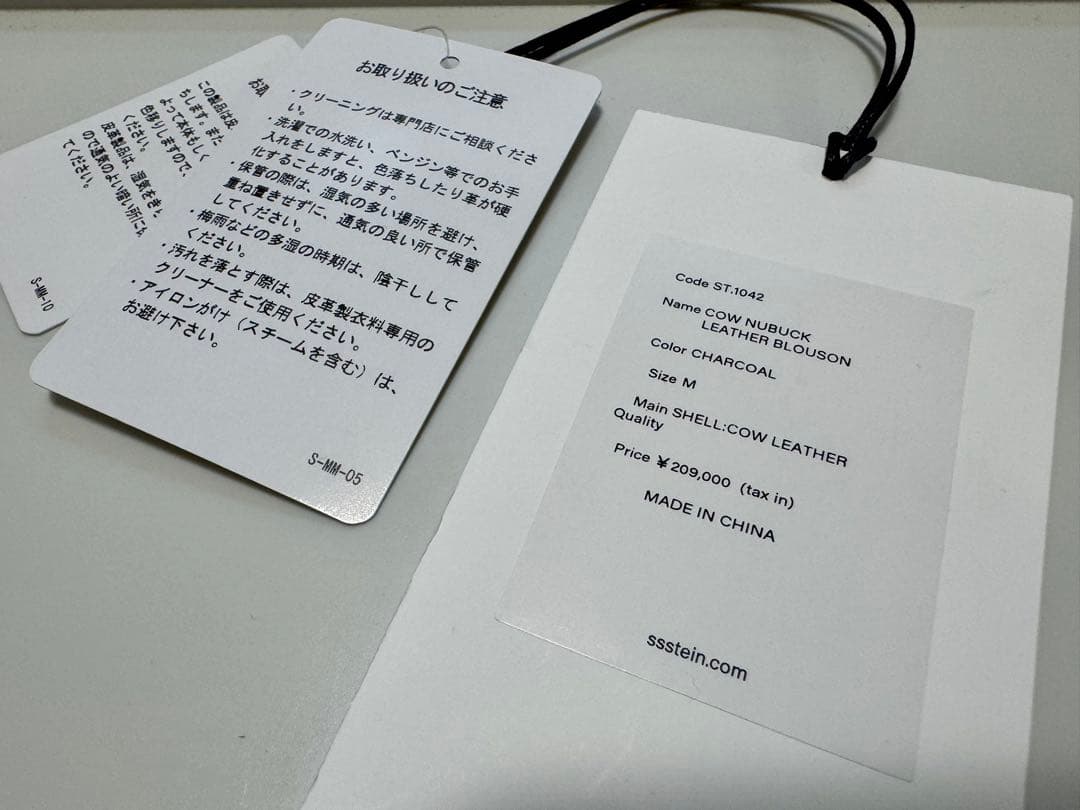 お取り扱いのご注意
・クリーニングは専門店にご相談くださ
い。
・洗濯での水洗い、ベンジン等でのお手
入れをしますと、色落ちしたり革が硬
化することがあります。
・保管の際は、湿気の多い場所を避け、
重ね置きせずに、通気の良い所で保管
してください。
・梅雨などの多湿の時期は、陰干しして
ください。
・汚れを落とす際は、皮革製衣料専用の
クリーナーをご使用ください。
・アイロンがけ（スチームを含む）は、
お避け下さい。
S-MM-05
お取
この製品は皮
ちします。また
よって本体もしく
色移りしますので、
ください。
皮革製品は、湿気をき
ので通気のよい暗い所に
てください。
S-MM-10
Code ST.1042
Name COW NUBUCK
LEATHER BLOUSON
Color CHARCOAL
Size M
Main SHELL:COW LEATHER
Quality
Price ¥209,000 (tax in)
MADE IN CHINA
ssstein.com